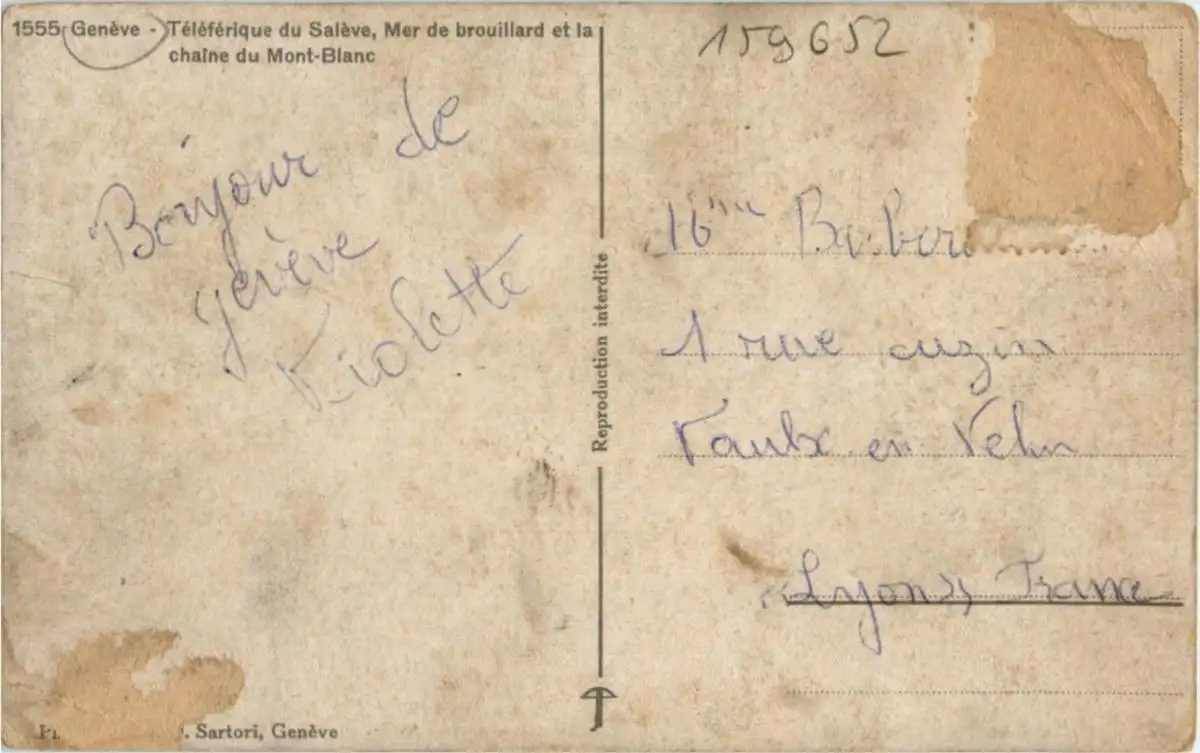 1555 Genève - Téléférique du Salève, Mer de brouillard et la
chaîne du Mont-Blanc
Bonjour de
genève
Violette
Reproduction interdite
Sartori, Genève
159652
1 rue auzin
Vaulx en Velin
Lyon France